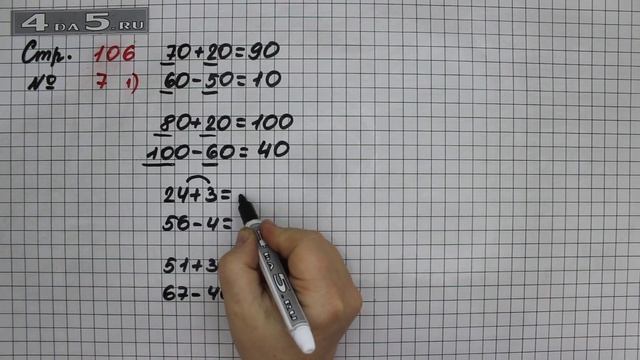 4 ДА 5.RU
Стр. 106
№ 7 1)
70+20=90
60-50=10
80+20=100
100-60=40
24+3=
56-4=
51+3
67-4
ДА 5.RU